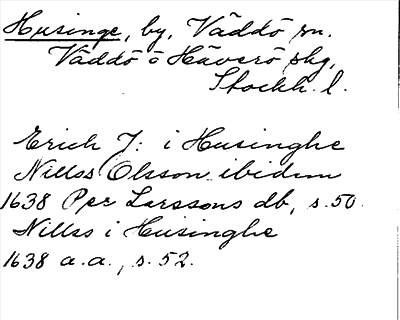 Husinge, by, Väddö sn.
Väddö o Häverö skg,
Stockh. l.
Erich J: i Husinghe
Nillss Olsson ibidm
1638 Per Larssons db, s. 50.
Nillss i Husinghe
1638 a.a., s. 52.